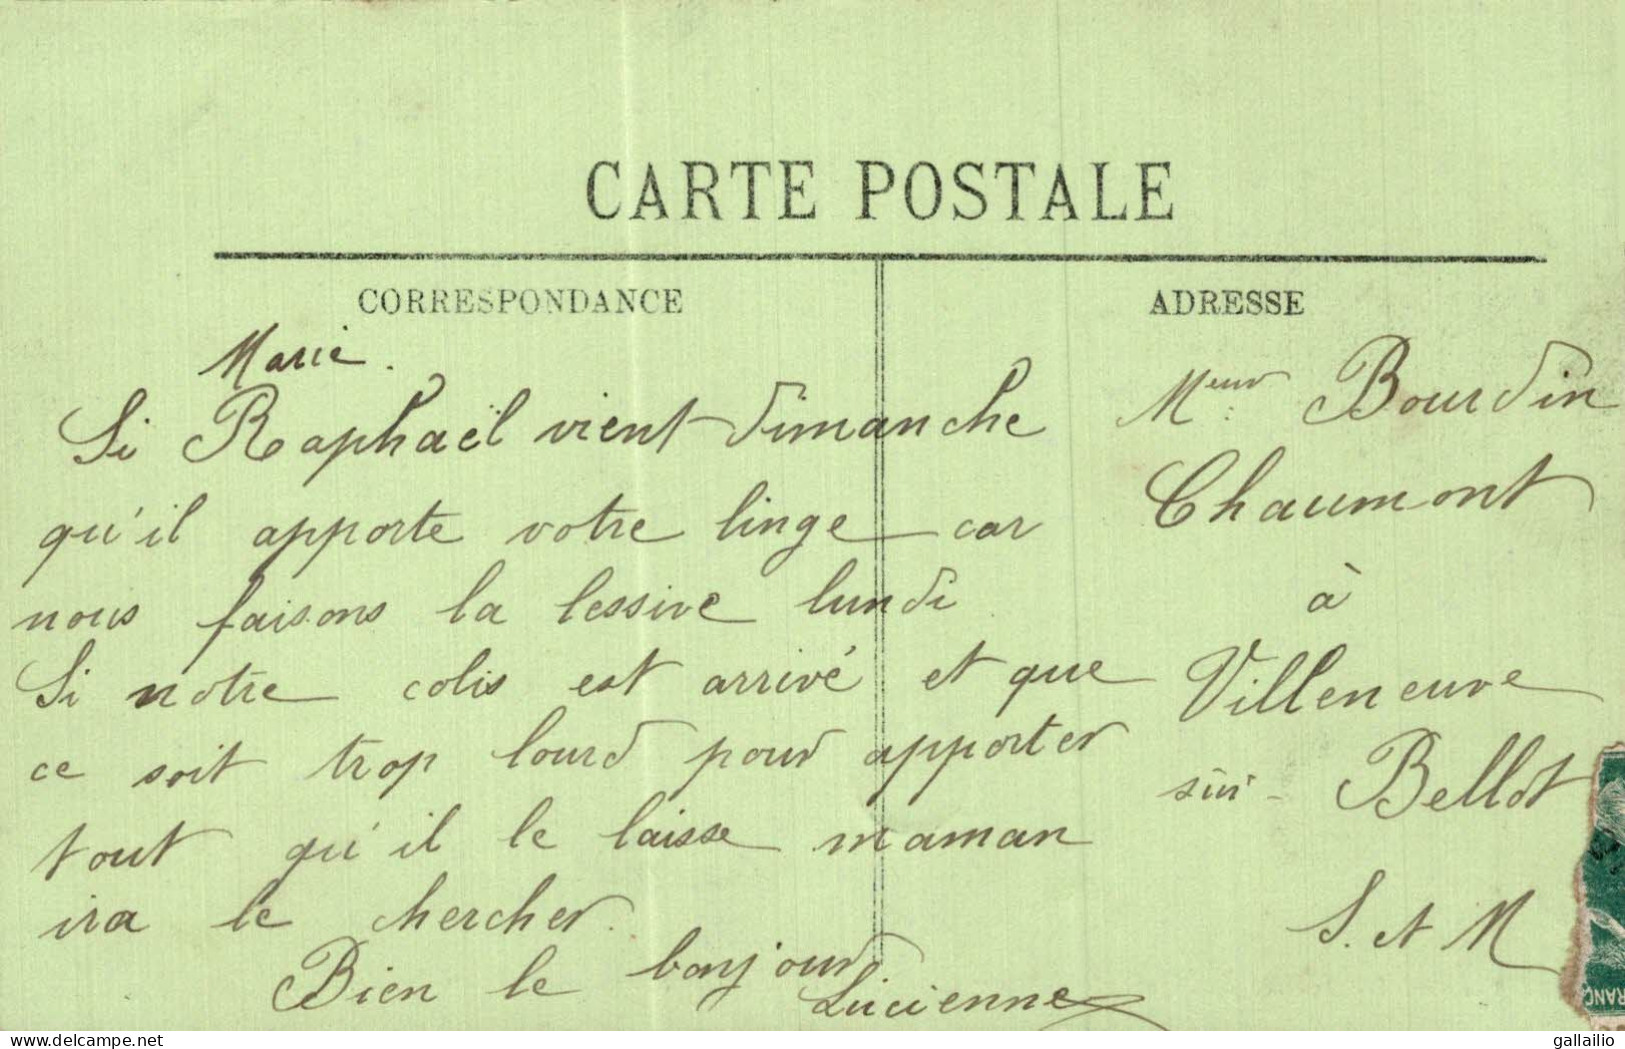 CARTE POSTALE
CORRESPONDANCE
Marie.
Si Raphaël vient dimanche
qu'il apporte votre linge car
nous faisons la lessive lundi
Si notre colis est arrivé et que
ce soit trop lourd pour apporter
tout qu'il le laisse maman
ira le chercher.
Bien le bonjour
Lucienne
ADRESSE
Meur Bourdin
Chaumont
à
Villeneuve
sur Bellot
S. et M
FRANÇ
delcampe.net
gallailio